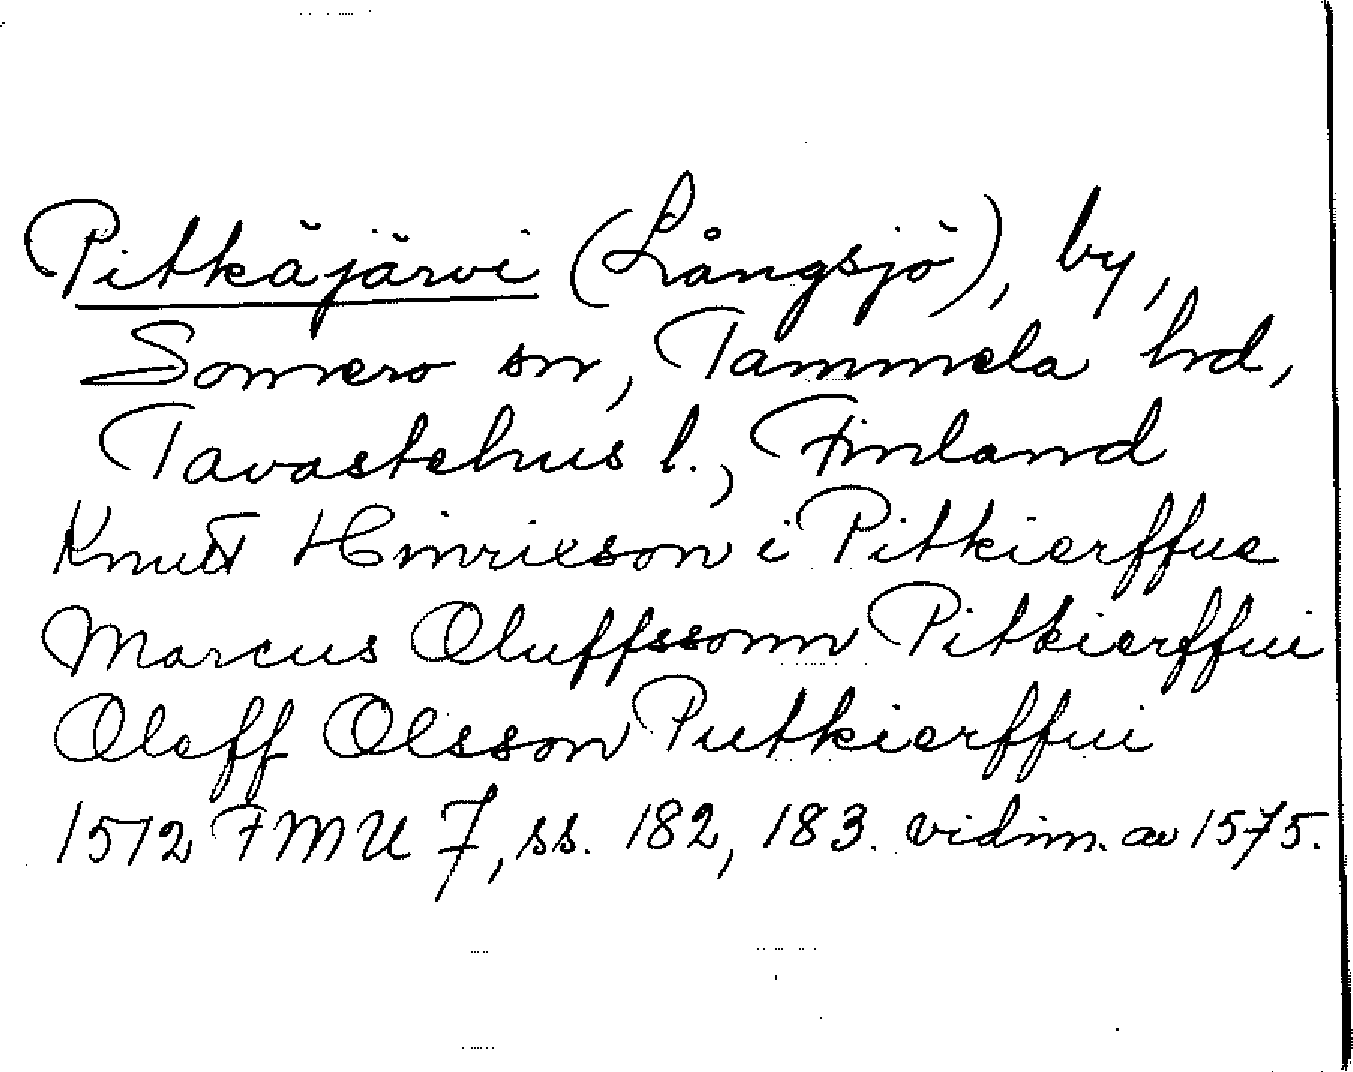 Pitkäjärvi (Långsjö), by,
Somero sn, Tammela hrd,
Tavastehus l., Finland
Knutt Hinricson i Pitkierffue
Marcus Oluffssonn Pitkierffui
Oleff Olsson Putkierffui
1512 FMU 7, ss. 182, 183. vidim. av 1575.